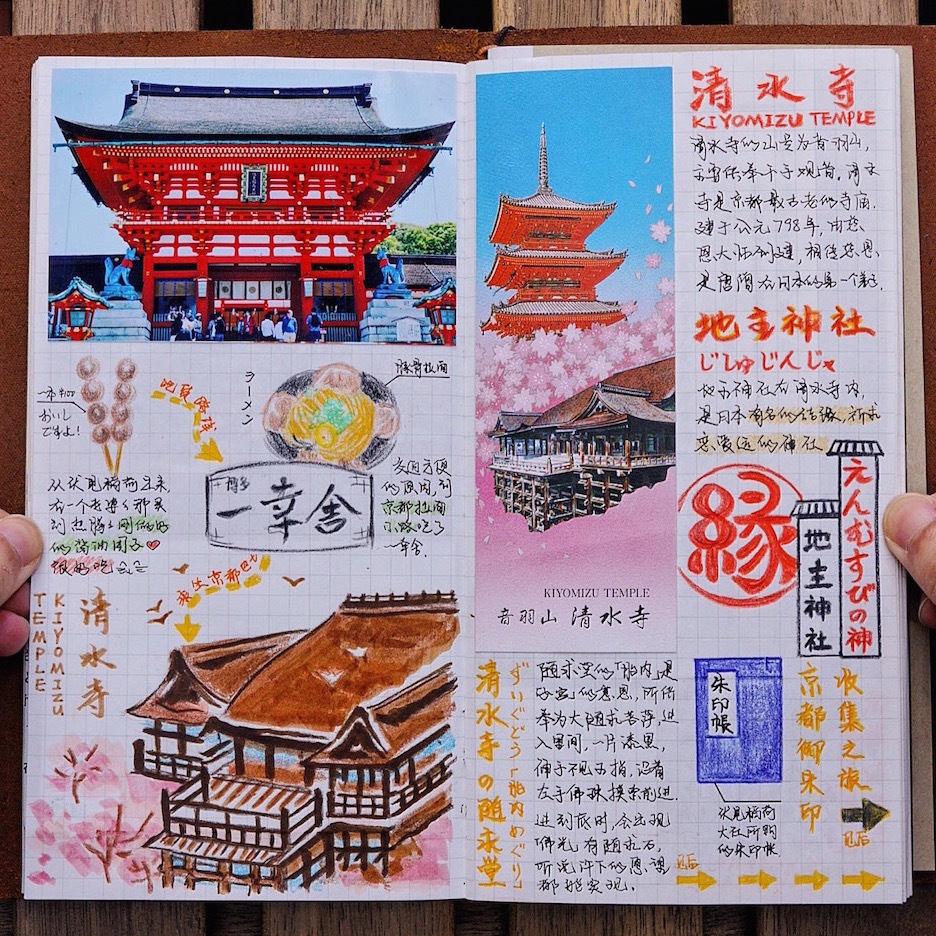 一本¥100
おいし
ですよ!
吃货路线
ラーメン
豚骨拉面
从伏见稻荷出来,
有一个老婆婆那买
到热腾腾刚做好
的酱油团子
很好吃
博多
一幸舍
交通方便
的原因,到
京都拉面
小路吃了
一幸舍.
乘坐京都巴士
清水寺
KIYOMIZU
TEMPLE
KIYOMIZU TEMPLE
音羽山 清水寺
清水寺
KIYOMIZU TEMPLE
清水寺的山号为音羽山,
主要供奉千手观音,清水
寺是京都最古老的寺庙.
建于公元798年,由慈
恩大师创建,相传慈恩
是唐僧在日本的第一个弟子.
地主神社
じしゅじんじゃ
地主神社在清水寺内,
是日本有名的结缘,祈求
恋爱运的神社
縁
えんむすびの神
地主神社
清水寺の随求堂
ずいぐどう「胎内めぐり」
随求堂的「胎内」是
子宫的意思,所供
奉为大随求菩萨,进
入里间,一片漆黑,
伸手不见五指,沿着
左手佛珠摸索前进.
进到底时,会出现
佛光,有随求石,
听说许下的愿望
都能实现.
朱印帳
伏见稻荷
大社所购
的朱印帐
京都御朱印
收集之旅